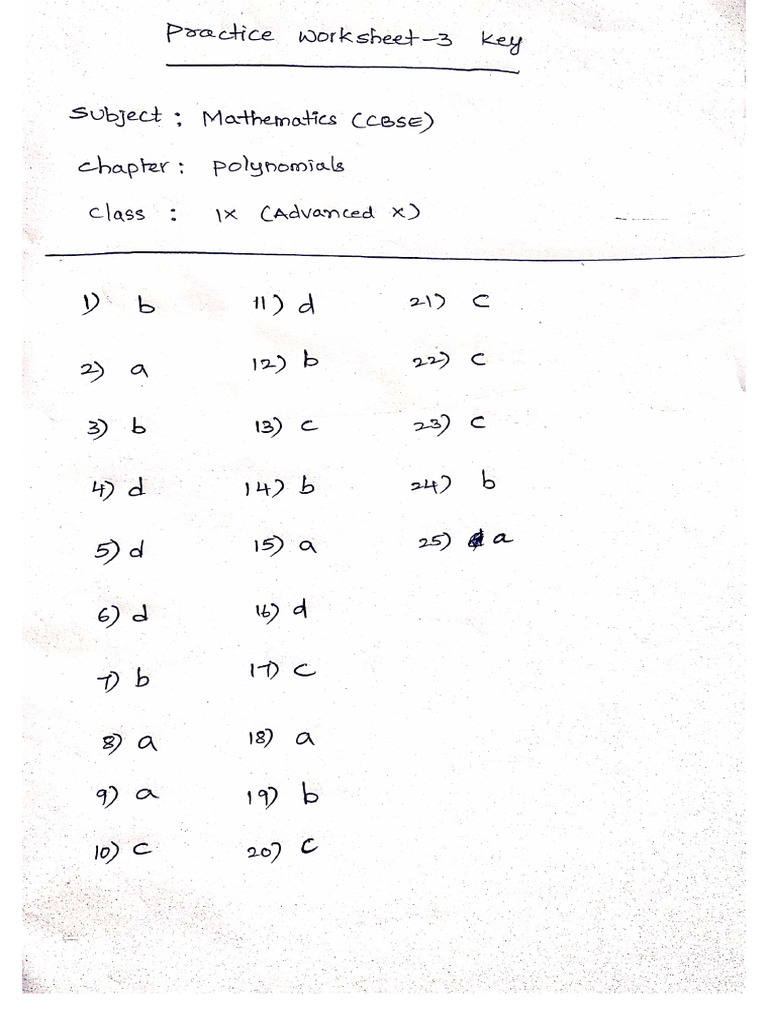 Practice Worksheet-3 Key
Subject : Mathematics (CBSE)
Chapter : Polynomials
Class : IX (Advanced X)
1) b 11) d 21) c
2) a 12) b 22) c
3) b 13) c 23) c
4) d 14) b 24) b
5) d 15) a 25) a
6) d 16) d
7) b 17) c
8) a 18) a
9) a 19) b
10) c 20) c